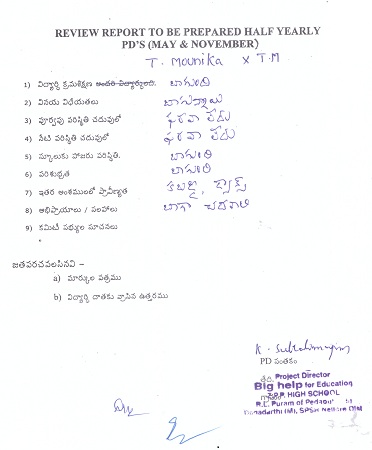 REVIEW REPORT TO BE PREPARED HALF YEARLY
PD'S (MAY & NOVEMBER)
T. Mounika X T.M
1) విద్యార్థి క్రమశిక్షణ బాగుంది
2) వినయ విధేయతలు బాగున్నాయి
3) పూర్వపు పరిస్థితి చదువులో ఫరవా లేదు
4) నేటి పరిస్థితి చదువులో ఫరవా లేదు
5) స్కూలుకు హాజరు పరిస్థితి. బాగుంది
6) పరిశుభ్రత బాగుంది
7) ఇతర అంశములలో ప్రావీణ్యత కబడ్డి,
8) అభిప్రాయాలు / సలహాలు బాగా చదవాలి
9) కమిటీ సభ్యుల సూచనలు
జతపరచవలసినవి –
a) మార్కుల పత్రము
b) విద్యార్థి దాతకు వ్రాసిన ఉత్తరము
PD సంతకం
Project Director
Big help for Education
Z.P.P. HIGH SCHOOL
R.L. Puram of
(M), SPSR Nellore Dist